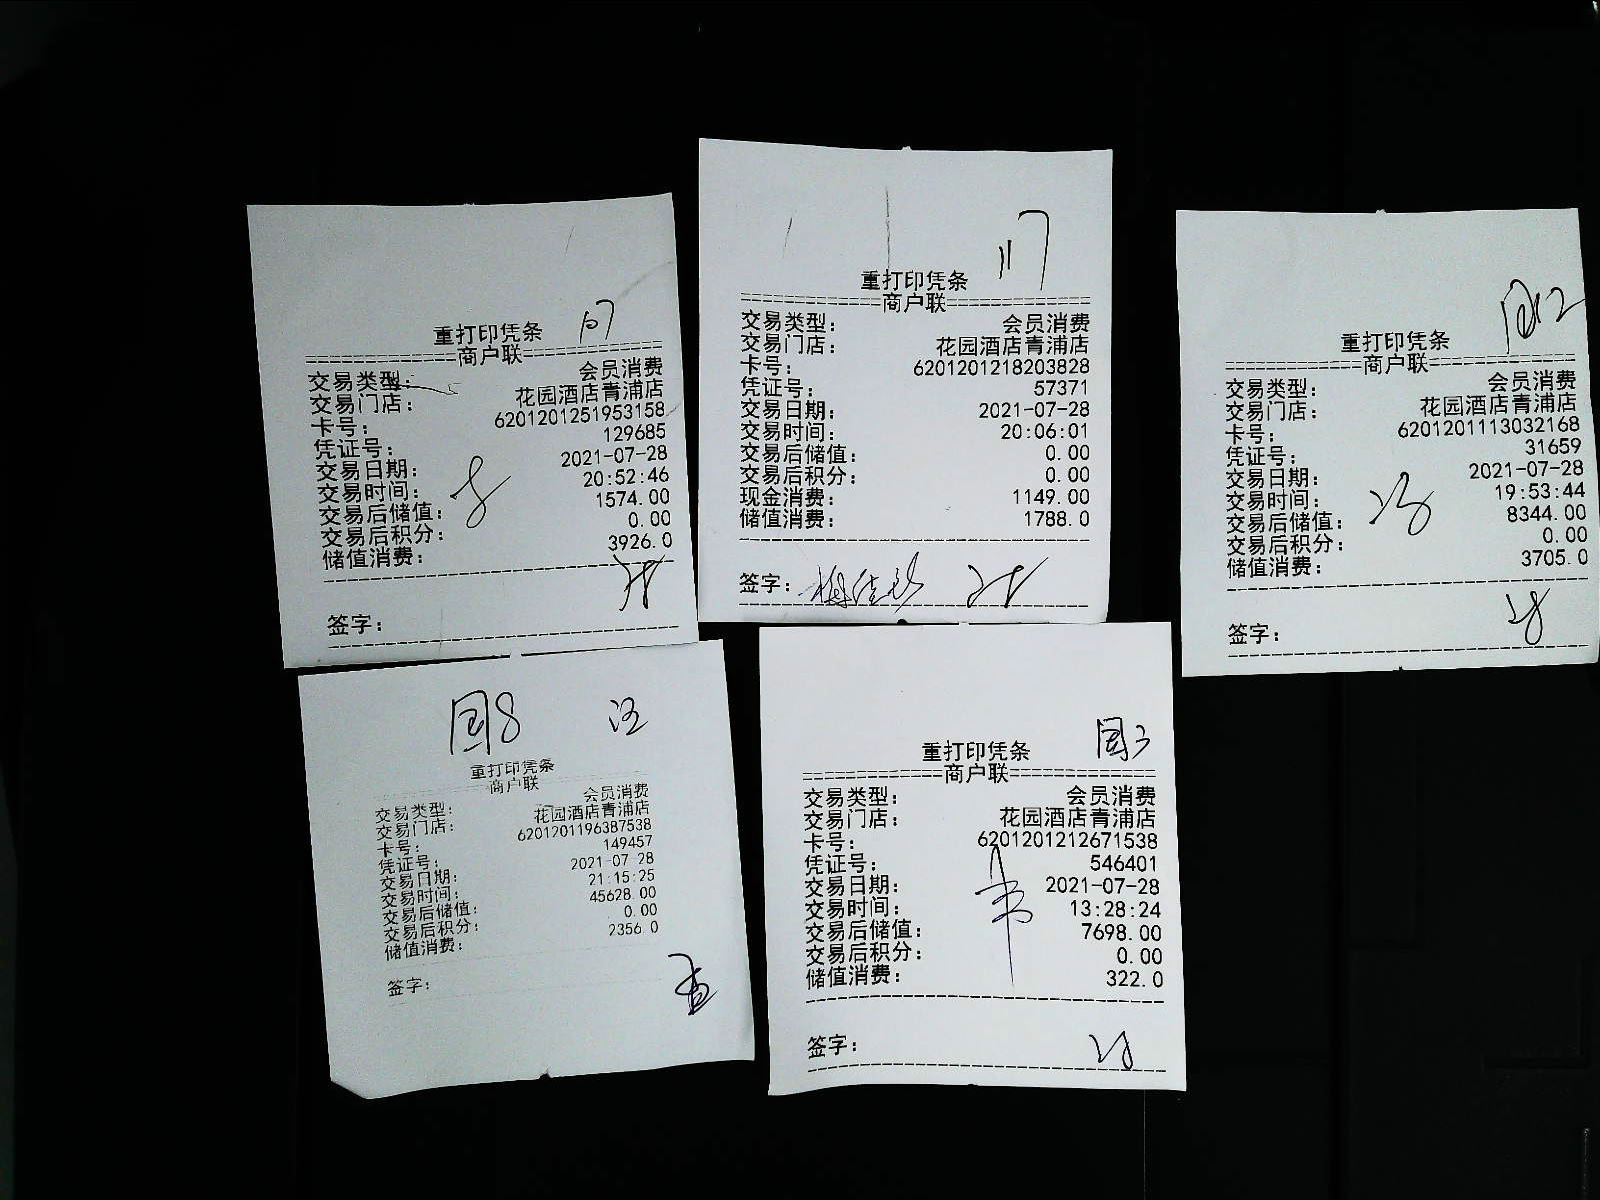 重打印凭条
商户联
交易类型: 会员消费
交易门店: 花园酒店青浦店
卡号: 6201201251953158
凭证号: 129685
交易日期: 2021-07-28
交易时间: 20:52:46
交易后储值: 1574.00
交易后积分: 0.00
储值消费: 3926.0
签字:
117
重打印凭条
商户联
交易类型: 会员消费
交易门店: 花园酒店青浦店
卡号: 6201201218203828
凭证号: 57371
交易日期: 2021-07-28
交易时间: 20:06:01
交易后储值: 0.00
交易后积分: 0.00
现金消费: 1149.00
储值消费: 1788.0
签字:
重打印凭条
商户联
交易类型: 会员消费
交易门店: 花园酒店青浦店
卡号: 6201201113032168
凭证号: 31659
交易日期: 2021-07-28
交易时间: 19:53:44
交易后储值: 8344.00
交易后积分: 0.00
储值消费: 3705.0
签字:
国8 汪
重打印凭条
商户联
交易类型: 会员消费
交易门店: 花园酒店青浦店
卡号: 6201201196387538
凭证号: 149457
交易日期: 2021-07-28
交易时间: 21:15:25
交易后储值: 45628.00
交易后积分: 0.00
储值消费: 2356.0
签字:
国3
重打印凭条
商户联
交易类型: 会员消费
交易门店: 花园酒店青浦店
卡号: 6201201212671538
凭证号: 546401
交易日期: 2021-07-28
交易时间: 13:28:24
交易后储值: 7698.00
交易后积分: 0.00
储值消费: 322.0
签字: